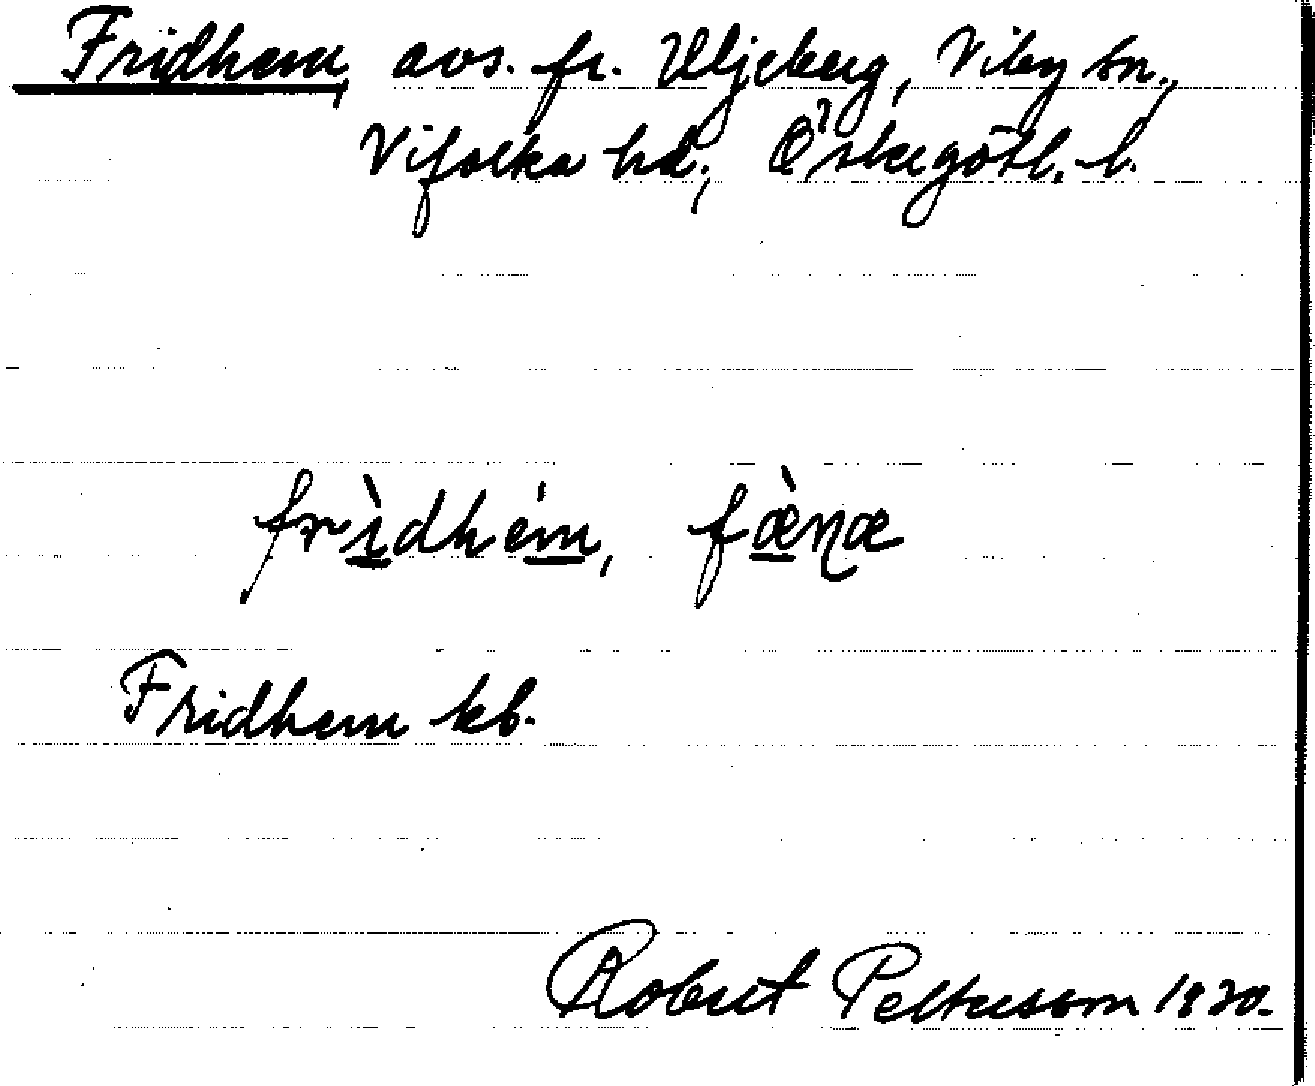 Fridhem, avs. fr. Uljeberg, Viby sn.,
Vifolka hd., Östergötl. l.
frìdhém, fæ̀næ
Fridhem kb.
Robert Pettersson 1920.